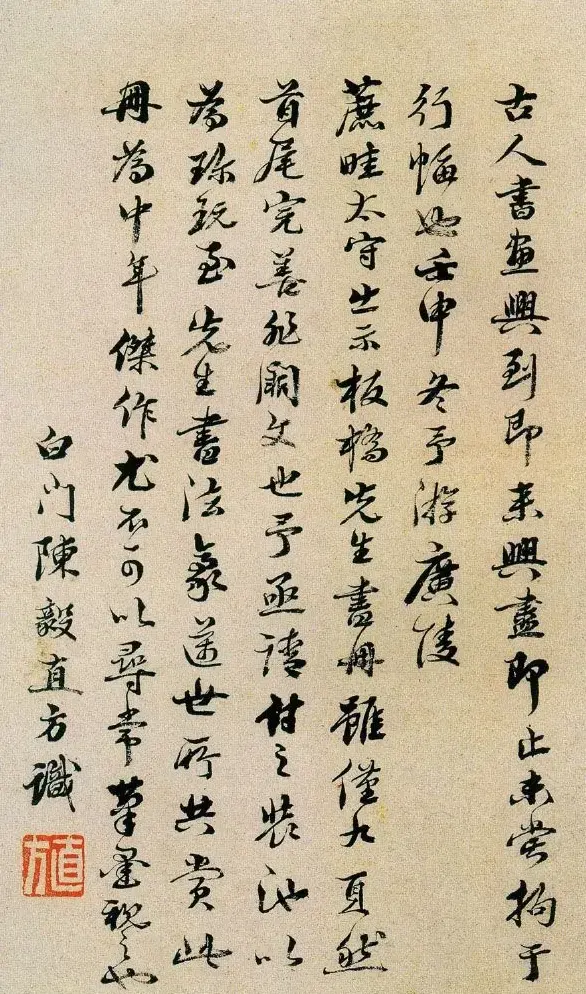 古人書畫興到即來興盡即止未嘗拘于
行幅也壬申冬予游廣陵
蔗畦太守出示板橋先生書冊雖僅九頁然
首尾完善非闕文也予亟請付之裝池以
為珍玩至先生書法豪邁世所共賞此
冊為中年傑作尤不可以尋常筆墨視之也
白门陳毅直方識
直方